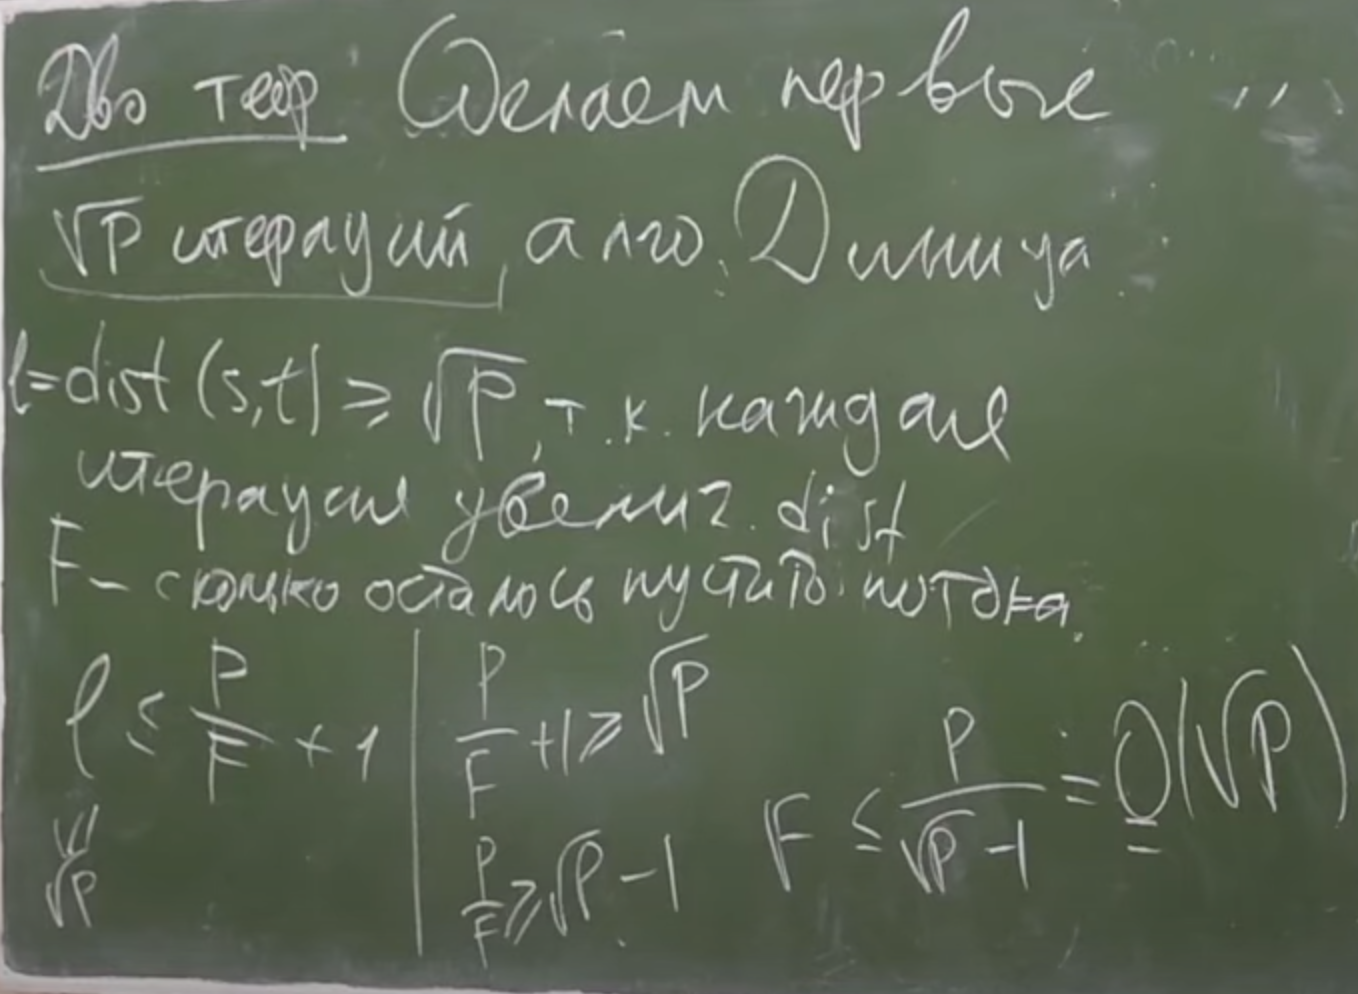 Д-во теор Сделаем первые
√P итераций алго. Диница
l = dist (s,t) ≥ √P, т.к. каждая
итерация увелич. dist
F – сколько осталось пустить потока.
l ≤ P/F + 1
VI
√P
P/F + 1 ≥ √P
P/F ≥ √P - 1
F ≤ P/(√P - 1) = O(√P)